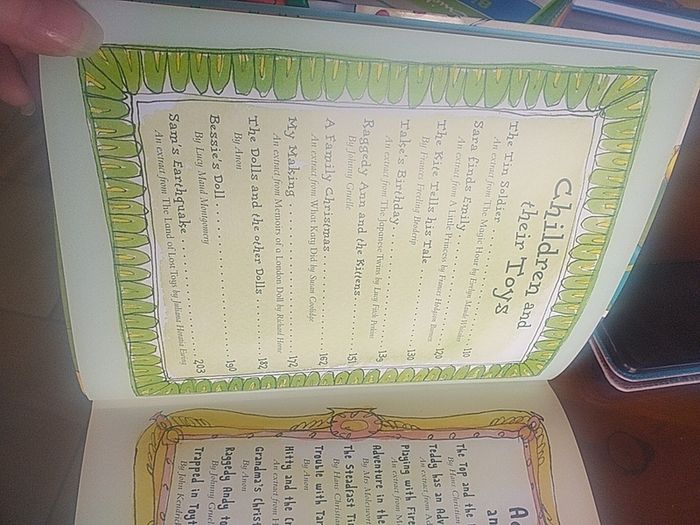 Children and
their Toys
The Tin Soldier ........ 110
An extract from The Magic House by Evelyn
Sara finds Emily ........ 120
An extract from A Little Princess by Frances Hodgson Burnett
The Kite Tells his Tale ........ 130
By Frances Freeling Broderip
Take's Birthday ........ 139
An extract from The Japanese Twins by Lucy Fitch Perkins
Raggedy Ann and the Kittens ........ 151
By Johnny Gruelle
A Family Christmas ........ 162
An extract from What Katy Did by Susan Coolidge
My Making ........ 172
An extract from Memoirs of a London Doll by Richard Horne
The Dolls and the other Dolls ........ 182
By Anon
Bessie's Doll ........ 190
By Lucy Maud Montgomery
Sam's Earthquake ........ 203
An extract from The Land of Lost Toys by Juliana Horatia Ewing
A
an
The Top and the
By Hans Christian
Teddy has an Adv
An extract from
Playing with Fire
An extract from
Adventure in the
By Mrs Molesworth
The Steadfast Tin
By Hans Christian
Trouble with Tar
By Anon
Kitty and the Cr
An extract from
Grandma's Christ
By Anon
Raggedy Andy to
By Johnny Gruel
Trapped in Toyt
By John Kendrick